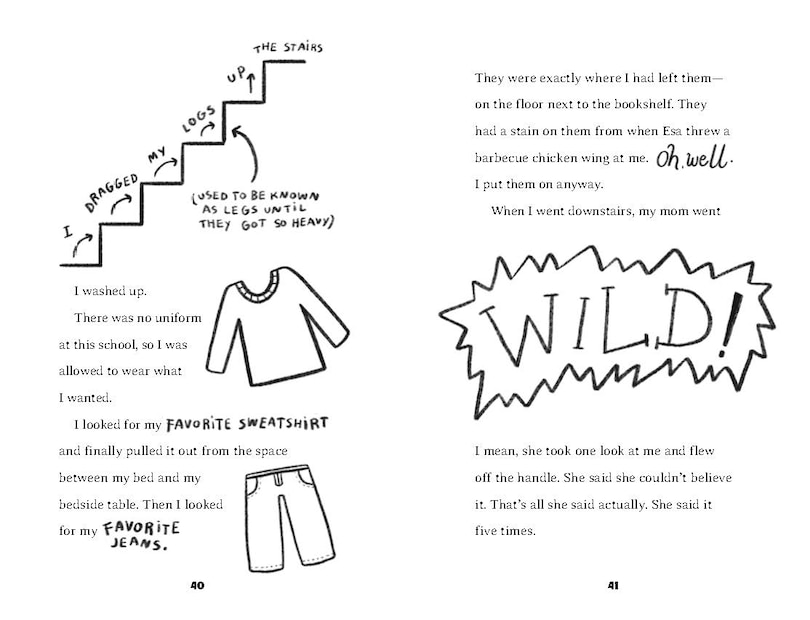 I DRAGGED MY LOGS UP THE STAIRS
(USED TO BE KNOWN
AS LEGS UNTIL
THEY GOT SO HEAVY)
I washed up.
There was no uniform
at this school, so I was
allowed to wear what
I wanted.
I looked for my FAVORITE SWEATSHIRT
and finally pulled it out from the space
between my bed and my
bedside table. Then I looked
for my FAVORITE
JEANS.
40
They were exactly where I had left them—
on the floor next to the bookshelf. They
had a stain on them from when Esa threw a
barbecue chicken wing at me. Oh, well.
I put them on anyway.
When I went downstairs, my mom went
WILD!
I mean, she took one look at me and flew
off the handle. She said she couldn't believe
it. That's all she said actually. She said it
five times.
41